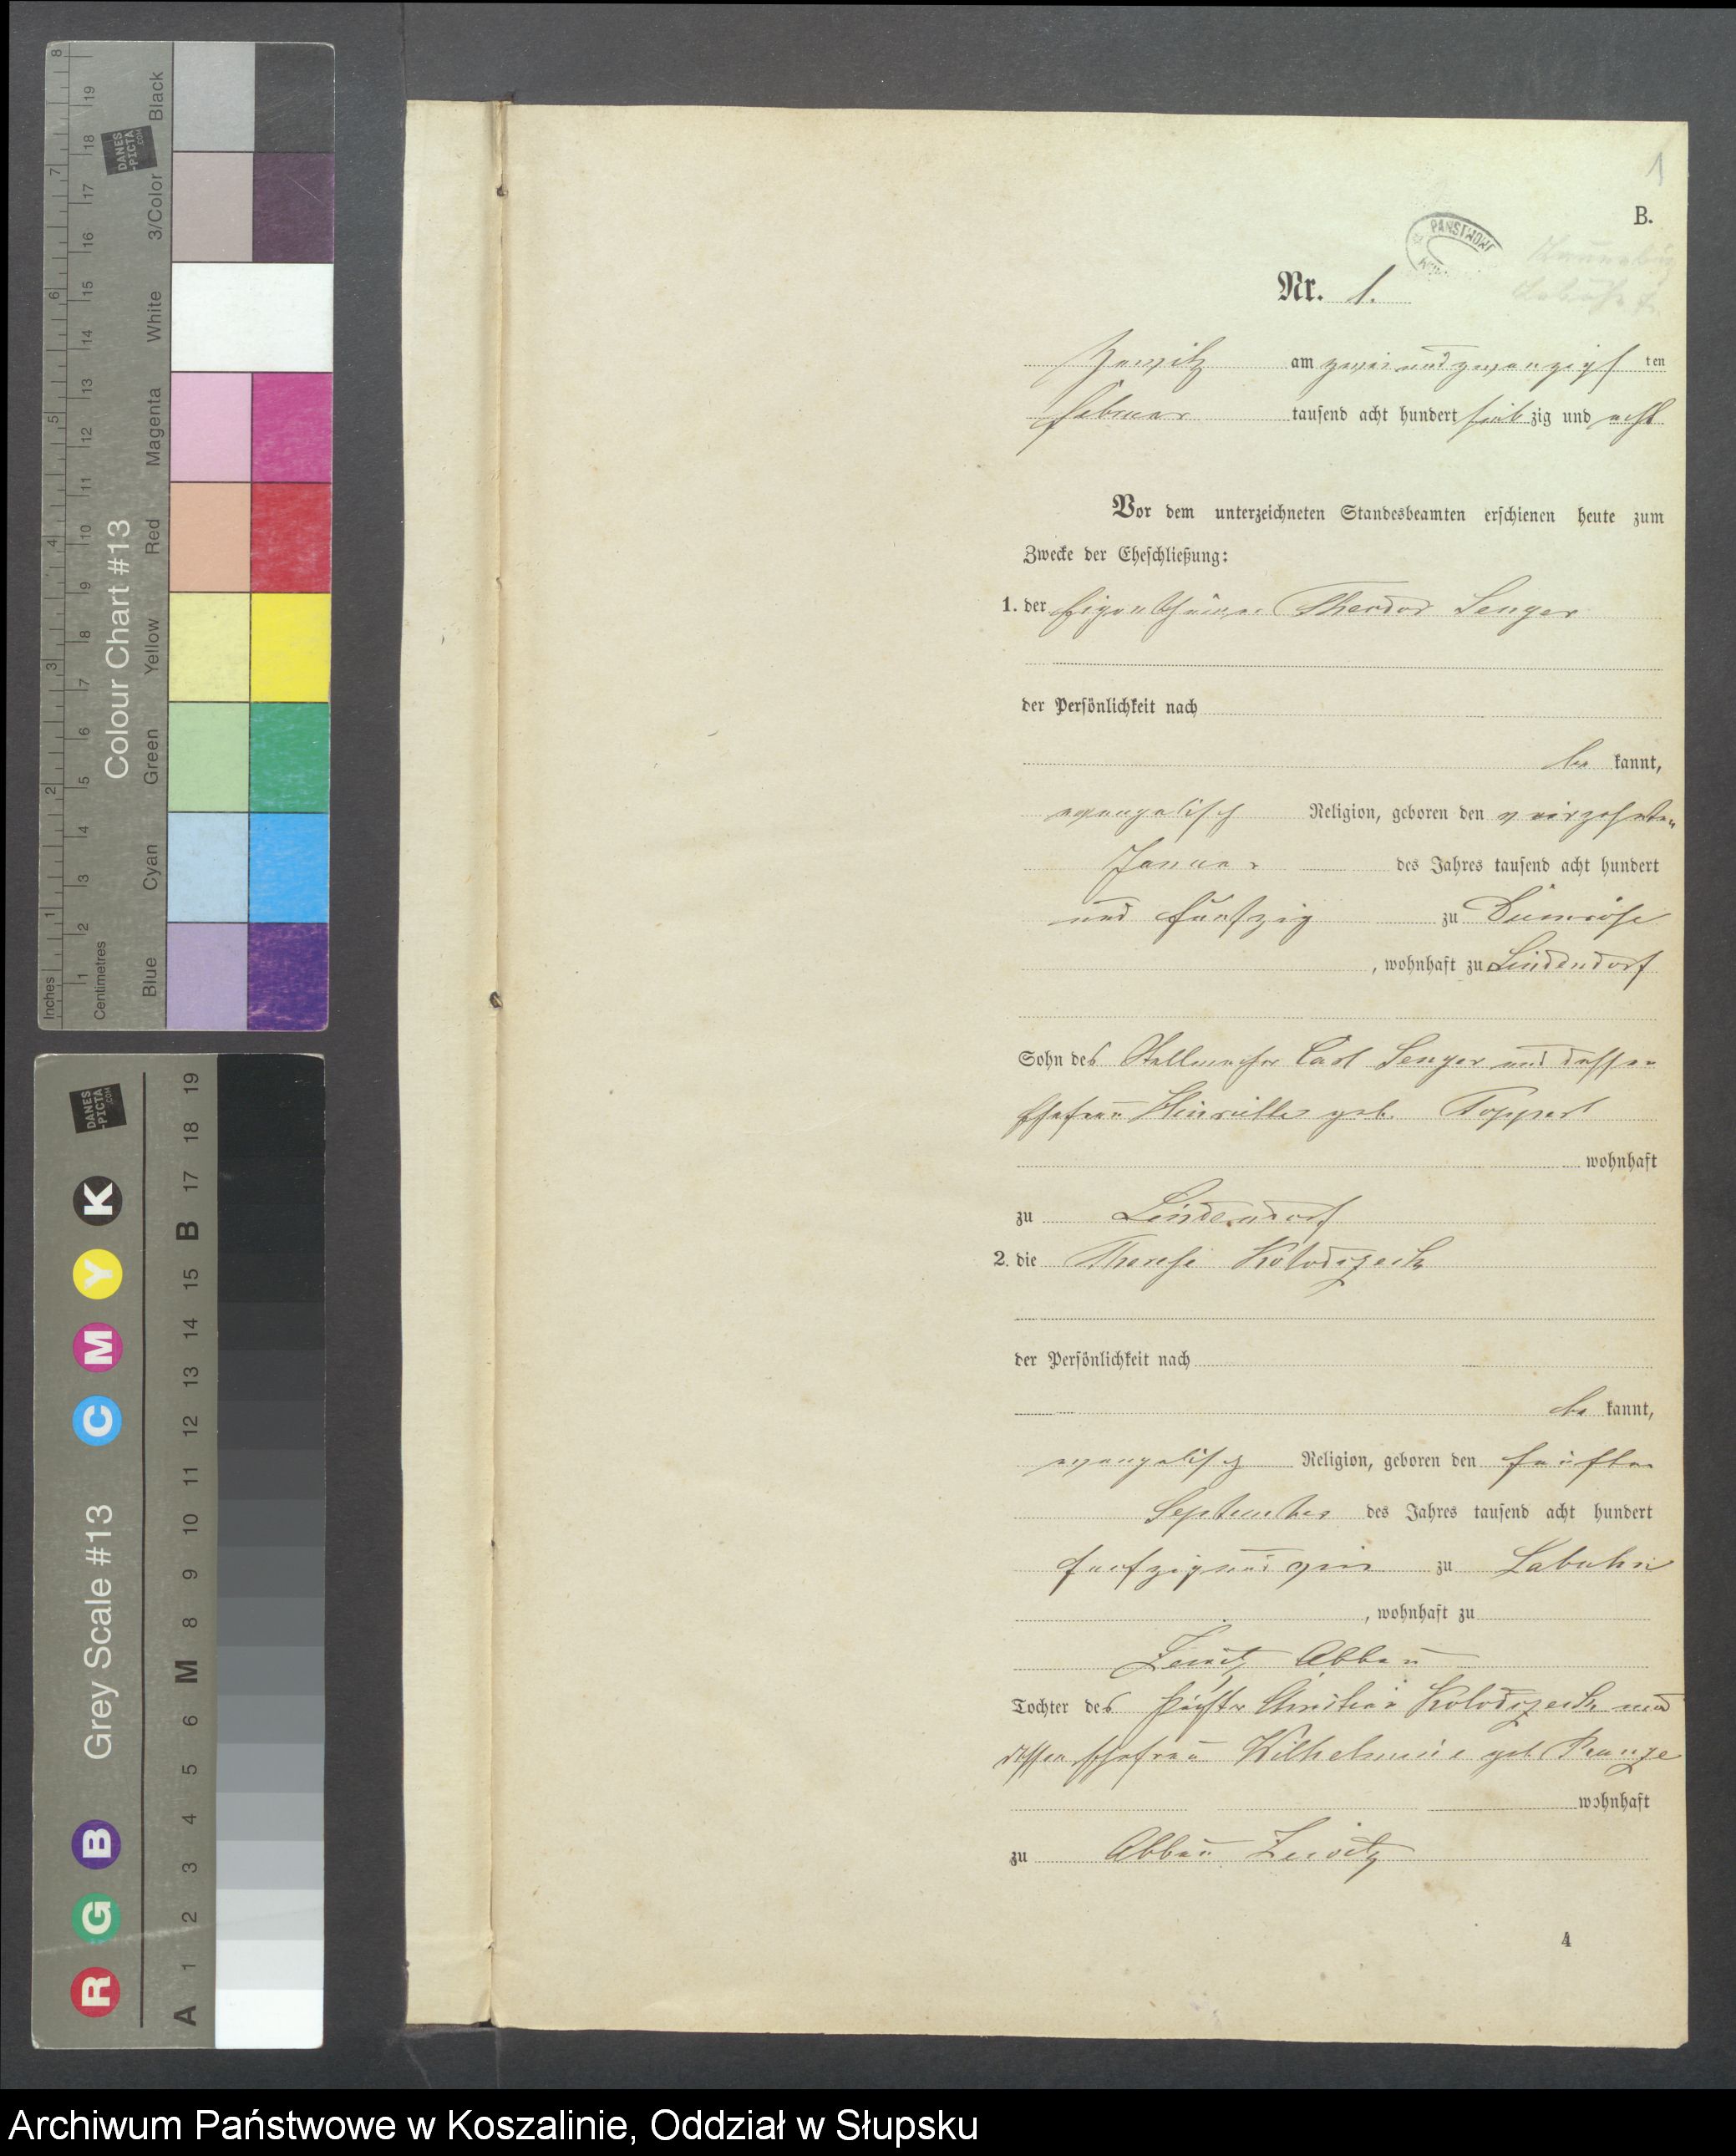 1
B.
PAŃSTWOWE
Nr. 1.
Zewitz am zwei und zwanzigsten
Februar tausend acht hundert siebzig und acht
Vor dem unterzeichneten Standesbeamten erschienen heute zum
Zwecke der Eheschließung:
1. der Eigenthümer Theodor Senger
der Persönlichkeit nach
be kannt,
evangelisch Religion, geboren den vierzehnten
Januar des Jahres tausend acht hundert
und fünfzig zu Dumröse
, wohnhaft zu Lindendorf
Sohn des Stellmacher Carl Senger und dessen
Ehefrau Henriette geb. Toppert
wohnhaft
zu Lindendorf
2. die Therese Kolodszeik
der Persönlichkeit nach
be kannt,
evangelisch Religion, geboren den fünften
September des Jahres tausend acht hundert
fünfzig und zu Labuhn
, wohnhaft zu
Zewitz Abbau
Tochter des Pächter Christian Kolodszeik und
dessen Ehefrau Wilhelmine geb. Runge
wohnhaft
zu Abbau Zewitz
4
Colour Chart #13
Inches 1 2 3 4 5 6 7 8
Centimetres 1 2 3 4 5 6 7 8 9 10 11 12 13 14 15 16 17 18 19
Blue Cyan Green Yellow Red Magenta White 3/Color Black
DANES
-PICTA
.COM
Grey Scale #13
A 1 2 3 4 5 6 M 8 9 10 11 12 13 14 15 B 17 18 19
R G B C M Y K
DANES
-PICTA
.COM
Archiwum Państwowe w Koszalinie, Oddział w Słupsku